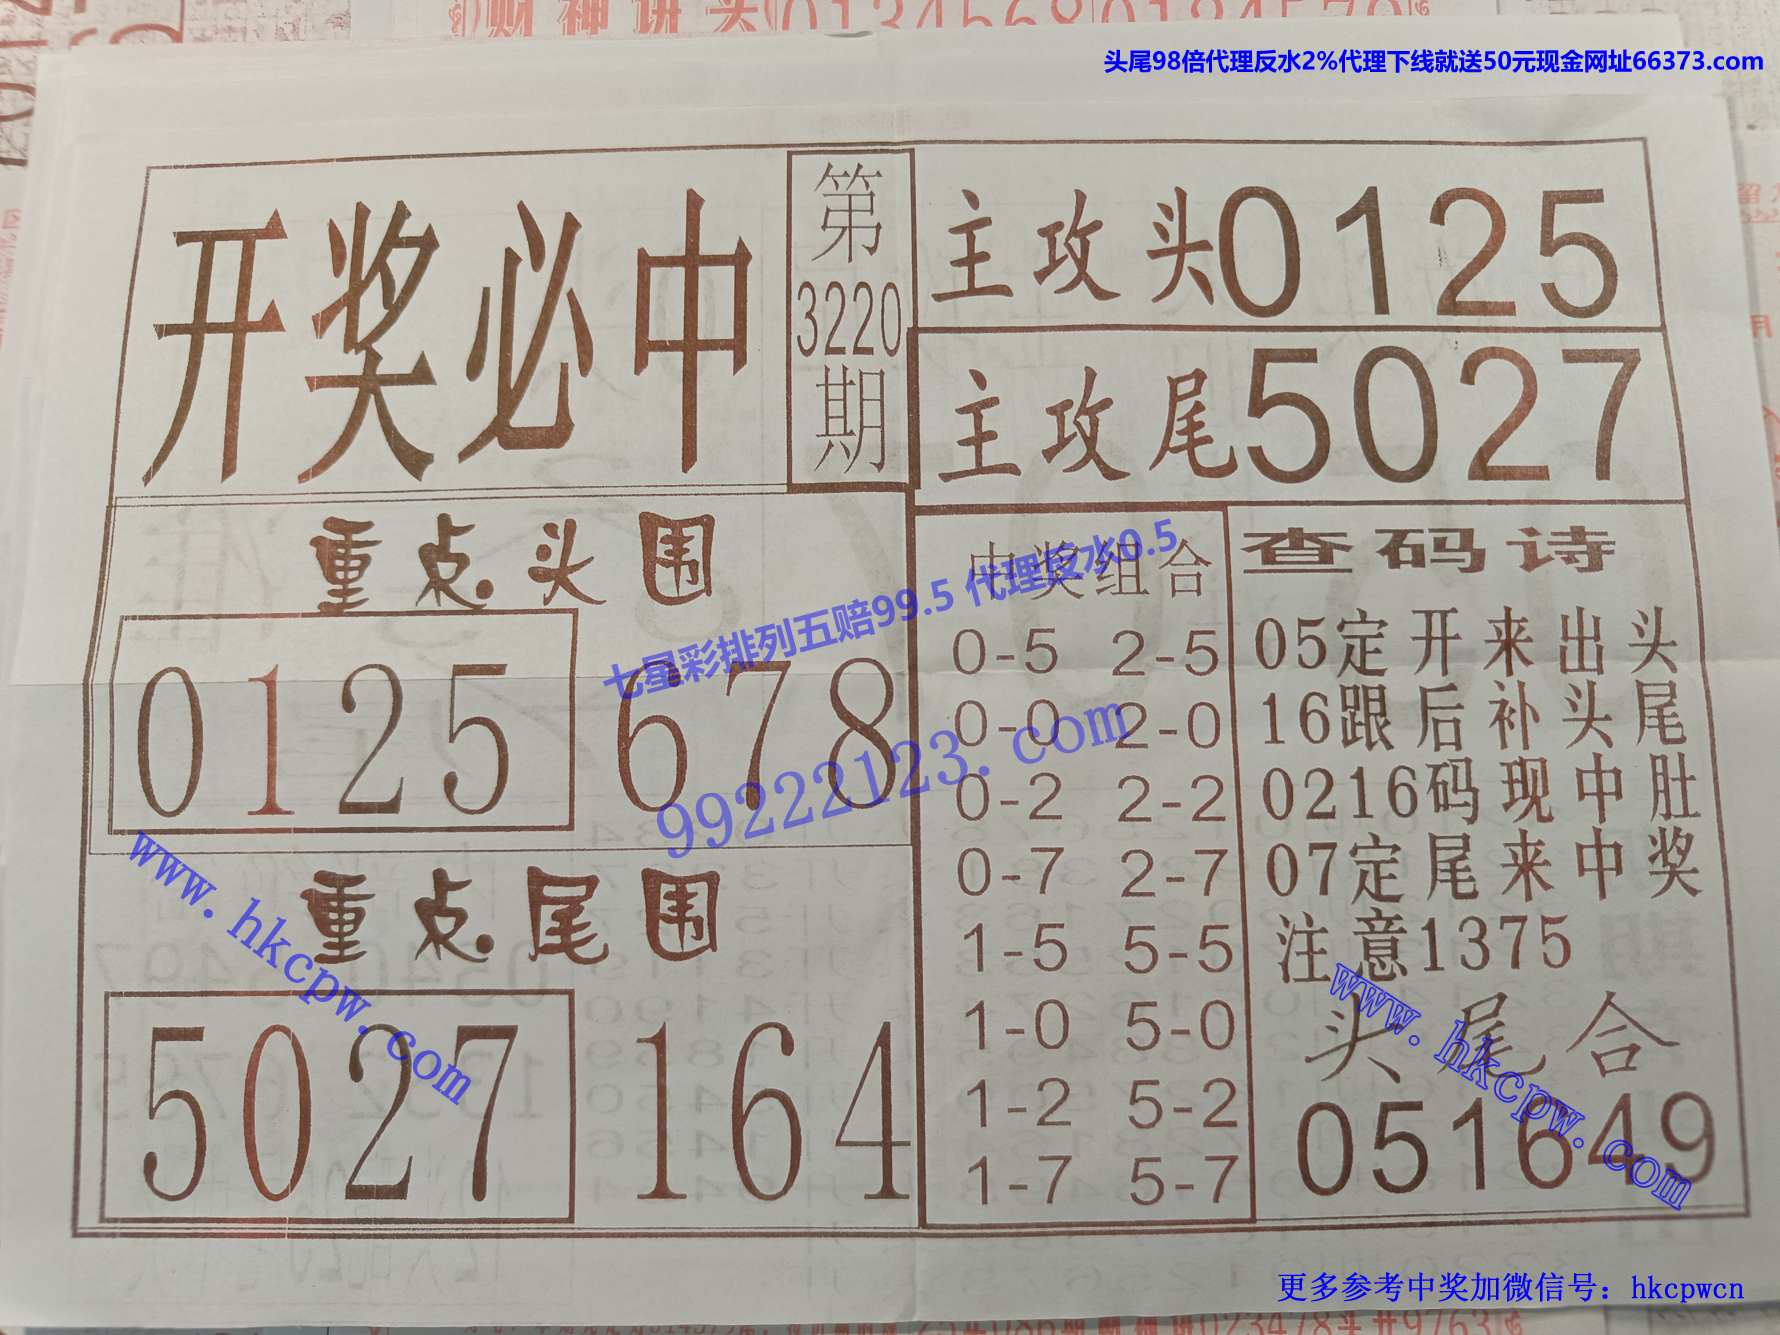 财神讲头 0134568
头尾98倍代理反水2%代理下线就送50元现金网址66373.com
开奖必中
第
3220
期
主攻头0125
主攻尾5027
重点头围
0125 678
重点尾围
5027 164
中奖组合
0-5 2-5
0-0 2-0
0-2 2-2
0-7 2-7
1-5 5-5
1-0 5-0
1-2 5-2
1-7 5-7
查码诗
05定开来出头
16跟后补头尾
0216码现中肚
07定尾来中奖
注意1375
头尾合
051649
七星彩排列五赔99.5 代理反水0.5
99222123.com
www.hkcpw.com
www.hkcpw.com
更多参考中奖加微信号：hkcpwcn